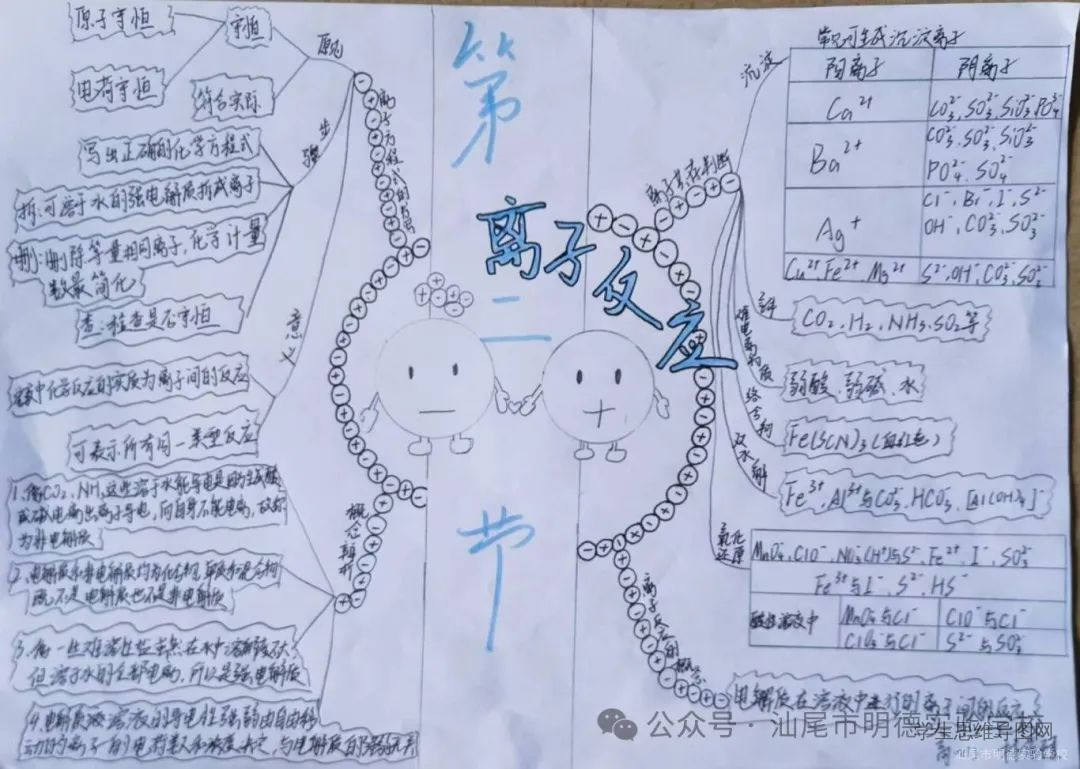 第二节
离子反应
原子守恒
守恒
原则
电荷守恒
符合实际
步骤
写出正确的化学方程式
拆:可溶于水的强电解质拆成离子
删:删除等量相同离子,化学计量
数最简化
查:检查是否守恒
意义
化学反应的实质为离子间的反应
可表示所有同一类型反应
离子方程式的书写
概念辨析
1.像CO₂、NH₃这些溶于水能导电是因为生成酸
或碱电离出离子导电,而自身不能电离,故称
为非电解质
2.电解质和非电解质均为化合物,单质和混合物
既不是电解质也不是非电解质
3.像一些难溶性盐虽然在水中溶解度不大
但溶于水的全部电离,所以是强电解质
4.电解质溶液的导电性强弱由自由移
动的离子
离子共存判断
沉淀
常见可生成沉淀离子
阳离子 阴离子
Ca²⁺ CO₃²⁻、SO₃²⁻、SiO₃²⁻、PO₄³⁻
Ba²⁺ CO₃²⁻、SO₃²⁻、SiO₃²⁻
PO₄²⁻、SO₄²⁻
Ag⁺ Cl⁻、Br⁻、I⁻、S²⁻
OH⁻、CO₃²⁻、SO₃²⁻
Cu²⁺ Fe²⁺、Mg²⁺ S²⁻、OH⁻、CO₃²⁻、SO₃²⁻
CO₂、H₂、NH₃、SO₂等
难电离物质
弱酸、弱碱、水
络合物
Fe(SCN)₃(血红色)
双水解
Fe³⁺、Al³⁺与CO₃²⁻、HCO₃⁻、[Al(OH)₄]⁻
氧化还原
MnO₄⁻、ClO⁻、NO₃⁻(H⁺)与S²⁻、Fe²⁺、I⁻、SO₃²⁻
Fe³⁺与I⁻、S²⁻、HS⁻
酸性溶液中 MnO₄⁻与Cl⁻ ClO⁻与Cl⁻
ClO₃⁻与Cl⁻ S²⁻与SO₃²⁻
离子反应的概念
电解质在溶液中进行的离子间的反应
公众号·汕尾市明德实验学校
学生思维导图网
汕尾市明德实验学校